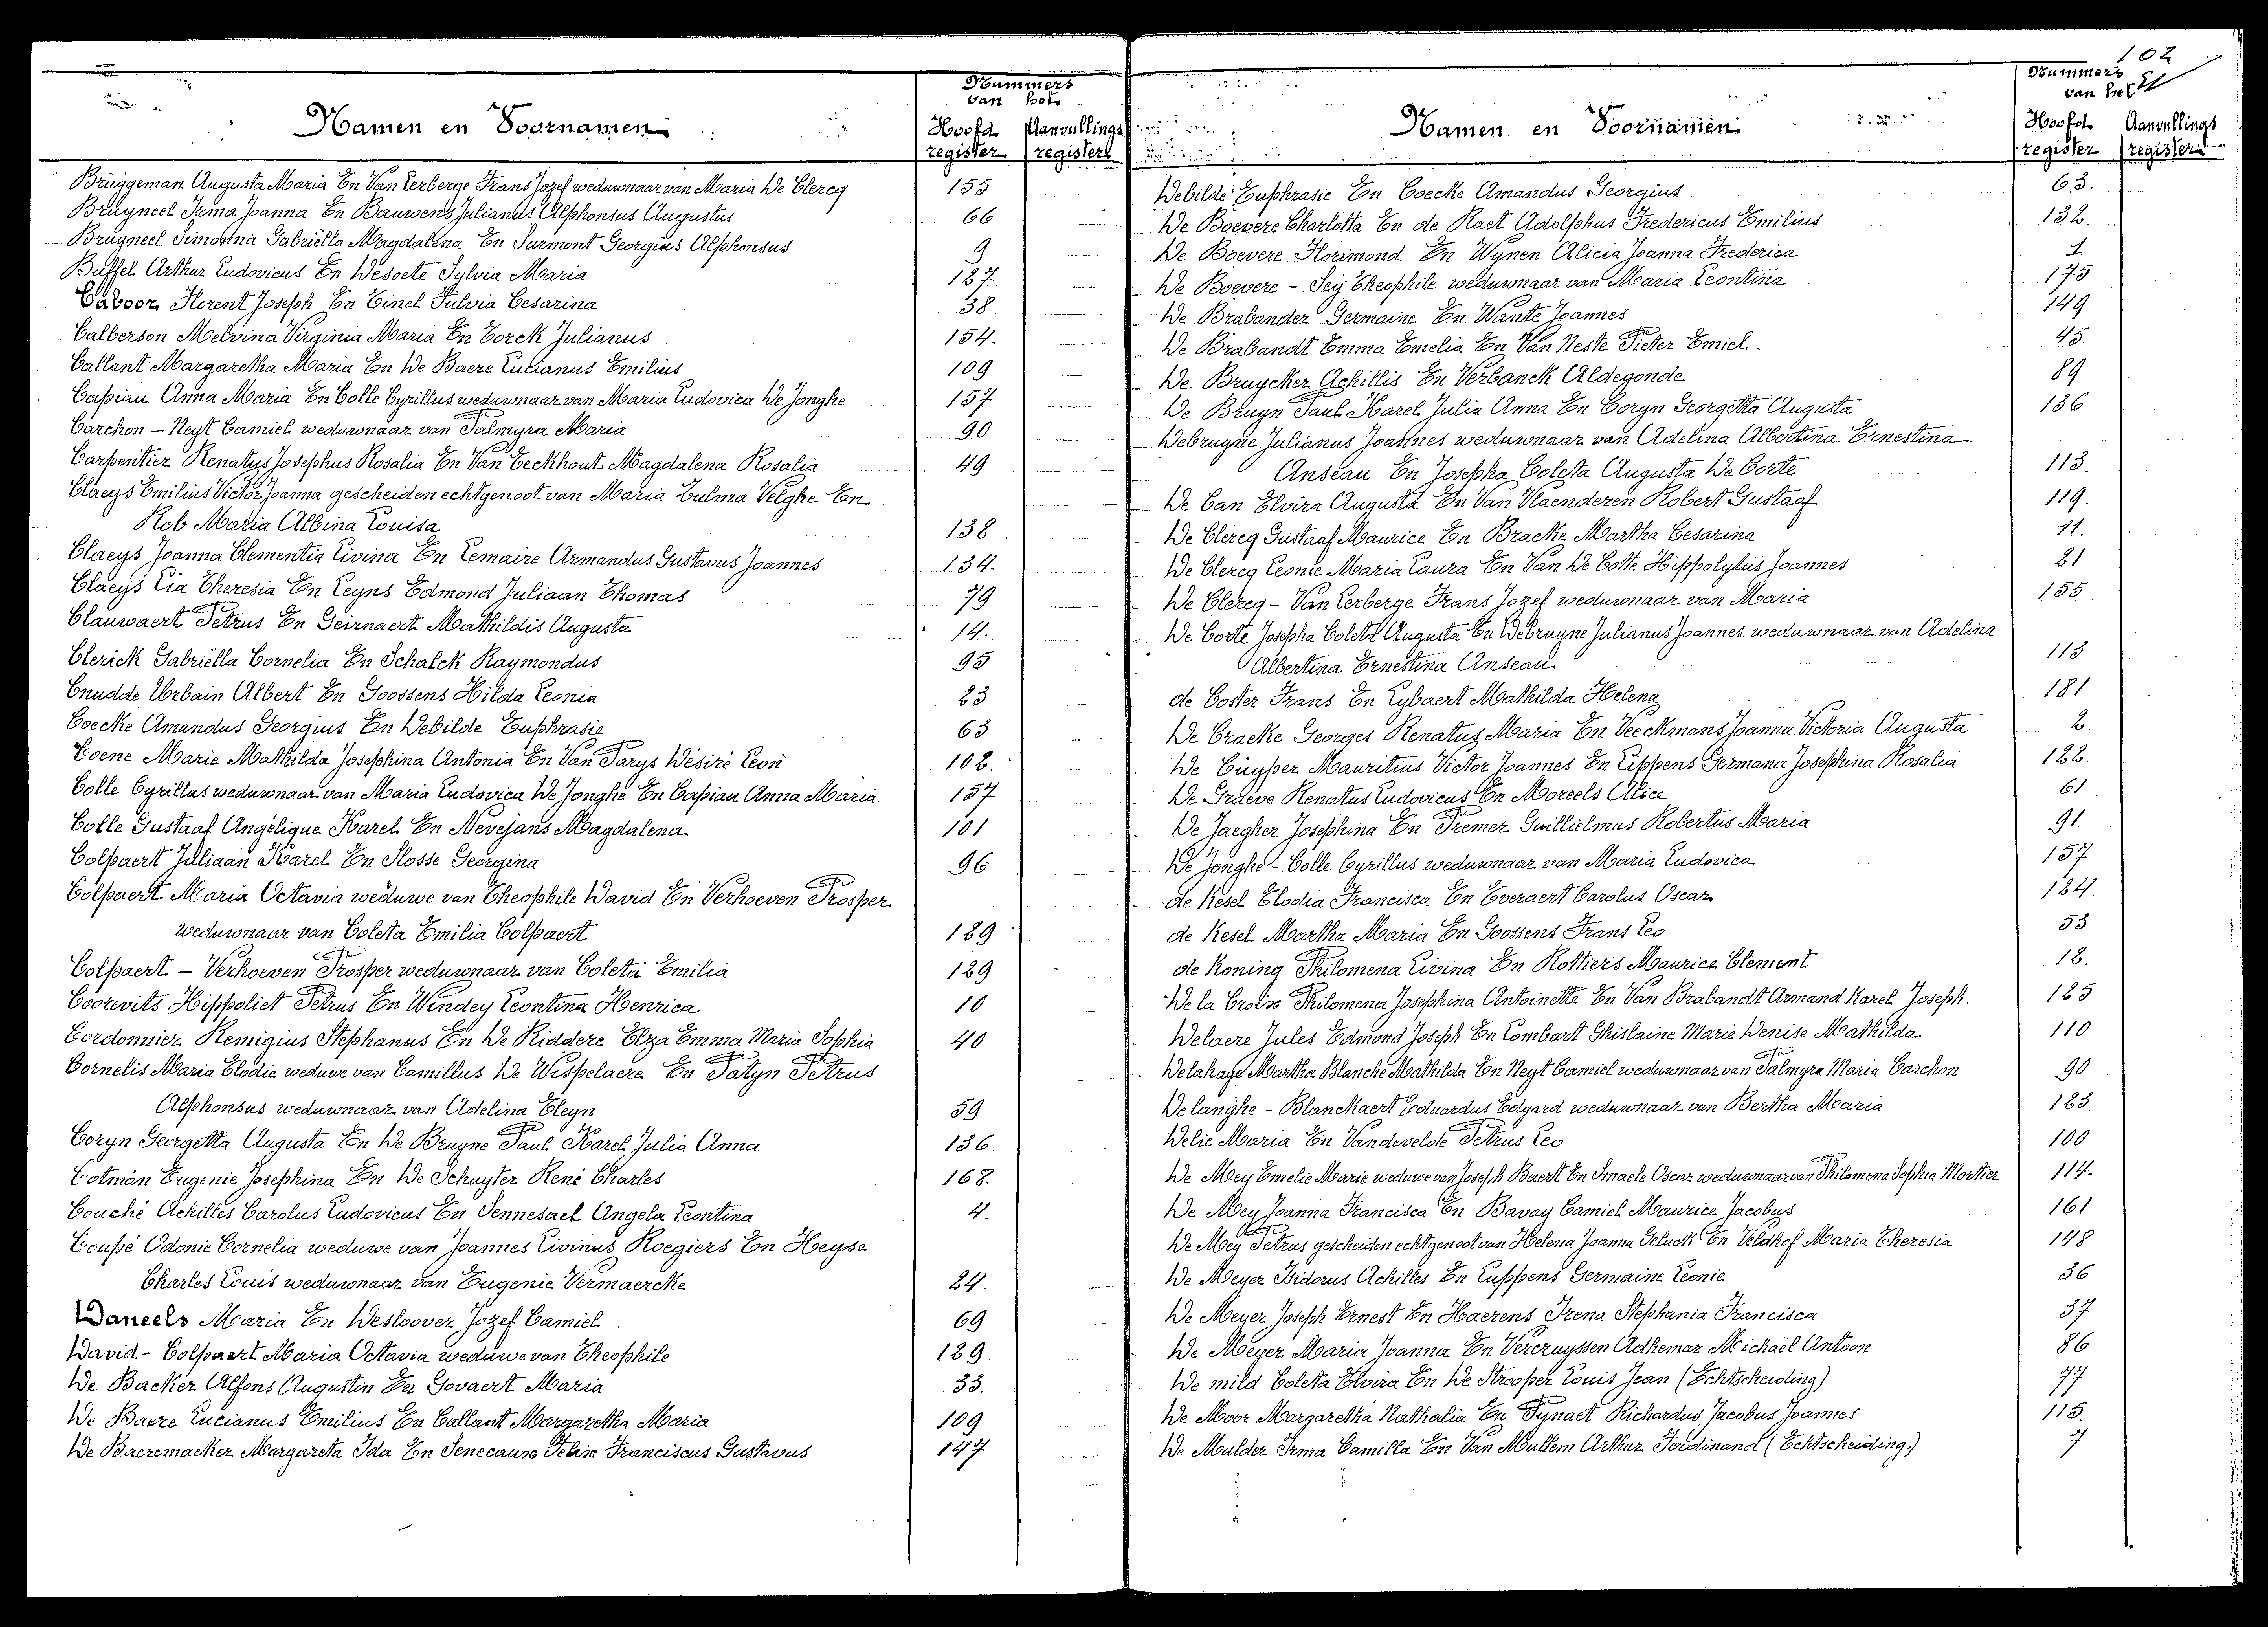 102
Nummers van het
Namen en Voornamen
Hoofd register
Aanvullings register
Bruggeman Augusta Maria En Van Lerberge Frans Jozef weduwnaar van Maria De Clercq 155
Bruyneel Irma Joanna En Bauwens Julianus Alphonsus Augustus 66
Bruyneel Simonna Gabriëlla Magdalena En Surmont Georgius Alphonsus 9
Buffel Arthur Ludovicus En Desoete Sylvia Maria 127
Caboor Florent Joseph En Tinel Fulvia Cesarina 38
Calberson Melvina Virginia Maria En Torck Julianus 154.
Callant Margaretha Maria En De Baere Lucianus Emilius 109
Capiau Anna Maria En Colle Cyrillus weduwnaar van Maria Ludovica De Jonghe 157
Carchon - Neyt Camiel weduwnaar van Palmyra Maria 90
Carpentier Renatus Josephus Rosalia En Van Eeckhout Magdalena Rosalia 49
Claeys Emilius Victor Joanna gescheiden echtgenoot van Maria Zulma Velghe En
Rob Maria Albina Louisa 138
Claeys Joanna Clementia Livina En Lemaire Armandus Gustavus Joannes 134.
Claeys Lia Theresia En Leyns Edmond Juliaan Thomas 79
Clauwaert Petrus En Geirnaert Mathildis Augusta 14.
Clerick Gabriëlla Cornelia En Schalck Raymondus 95
Cnudde Urbain Albert En Goossens Hilda Leonia 23
Coecke Amandus Georgius En Debilde Euphrasie 63
Coene Marie Mathilda Josephina Antonia En Van Parys Désiré Leon 102.
Colle Cyrillus weduwnaar van Maria Ludovica De Jonghe En Capiau Anna Maria 157
Colle Gustaaf Angélique Karel En Nevejans Magdalena 101
Colpaert Juliaan Karel En Slosse Georgina 96
Colpaert Maria Octavia weduwe van Theophile David En Verhoeven Prosper
weduwnaar van Coleta Emilia Colpaert 129
Colpaert - Verhoeven Prosper weduwnaar van Coleta Emilia 129
Coorevits Hippoliet Petrus En Windey Leontina Henrica 10
Cordonnier Remigius Stephanus En De Riddere Elza Emma Maria Sophia 40
Cornelis Maria Elodie weduwe van Camillus De Wispelaere En Patyn Petrus
Alphonsus weduwnaar van Adelina Cleyn 59
Coryn Georgetta Augusta En De Bruyne Paul Karel Julia Anna 136.
Cotman Eugenie Josephina En De Schuyter René Charles 168.
Couché Achilles Carolus Ludovicus En Sennesael Angela Leontina 4.
Coupé Odonie Cornelia weduwe van Joannes Livinus Roegiers En Heyse
Charles Louis weduwnaar van Eugenie Vermaercke 24.
Daneels Maria En Desloover Jozef Camiel 69
David - Colpaert Maria Octavia weduwe van Theophile 129
De Backer Alfons Augustin En Govaert Maria 33.
De Baere Lucianus Emilius En Callant Margaretha Maria 109
De Baeremacker Margareta Ida En Senecaux Felix Franciscus Gustavus 147
Nummers van het
Namen en Voornamen
Hoofd register
Aanvullings register
Debilde Euphrasie En Coecke Amandus Georgius 63.
De Boevere Charlotta En de Raet Adolphus Fredericus Emilius 132
De Boevere Florimond En Wynen Alicia Joanna Frederica 1
De Boevere - Sey Theophile weduwnaar van Maria Leontina 175
De Brabander Germaine En Wante Joannes 149
De Brabandt Emma Emelia En Van Neste Pieter Emiel. 45.
De Bruycker Achillis En Verbanck Aldegonde 89
De Bruyn Paul Karel Julia Anna En Coryn Georgetta Augusta 136
Debruyne Julianus Joannes weduwnaar van Adelina Albertina Ernestina
Anseau En Josepha Coleta Augusta De Corte 113.
De Can Elvira Augusta En Van Vlaenderen Robert Gustaaf 119.
De Clercq Gustaaf Maurice En Bracke Martha Cesarina 11.
De Clercq Leonie Maria Laura En Van De Cotte Hippolytus Joannes 21
De Clercq - Van Lerberge Frans Jozef weduwnaar van Maria 155
De Corte Josepha Coleta Augusta En Debruyne Julianus Joannes weduwnaar van Adelina
Albertina Ernestina Anseau 113
de Coster Frans En Lybaert Mathilda Helena 181
De Cracke Georges Renatus Maria En Veeckmans Joanna Victoria Augusta 2.
De Cuyper Mauritius Victor Joannes En Lippens Germana Josephina Rosalia 122.
De Graeve Renatus Ludovicus En Moreels Alice 61
De Jaegher Josephina En Premer Guillielmus Robertus Maria 91
De Jonghe - Colle Cyrillus weduwnaar van Maria Ludovica 157
de Kesel Elodia Francisca En Everaert Carolus Oscar 124.
de Kesel Martha Maria En Goossens Frans Leo 53
de Koning Philomena Livina En Rottiers Maurice Clement 12.
De la Croix Philomena Josephina Antoinette En Van Brabandt Armand Karel Joseph. 125
Delaere Jules Edmond Joseph En Lombart Ghislaine Marie Denise Mathilda 110
Delahaye Martha Blanche Mathilda En Neyt Camiel weduwnaar van Palmyra Maria Carchon 90
Delanghe - Blanckaert Eduardus Edgard weduwnaar van Bertha Maria 123.
Delie Maria En Vandevelde Petrus Leo 100
De Mey Emelie Marie weduwe van Joseph Baert En Smaele Oscar weduwnaar van Philomena Sophia Mortier 114.
De Mey Joanna Francisca En Bavay Camiel Maurice Jacobus 161
De Mey Petrus gescheiden echtgenoot van Helena Joanna Geluck En Veldhof Maria Theresia 148
De Meyer Isidorus Achilles En Luppens Germaine Leonie 36
De Meyer Joseph Ernest En Haerens Irena Stephania Francisca 37
De Meyer Maria Joanna En Vercruyssen Adhemar Michaël Antoon 86
De mild Coleta Elvira En De Strooper Louis Jean (Echtscheiding) 77
De Moor Margaretha Nathalia En Pynaet Richardus Jacobus Joannes 115.
De Muilder Irma Camilla En Van Mullem Arthur Ferdinand (Echtscheiding.) 7